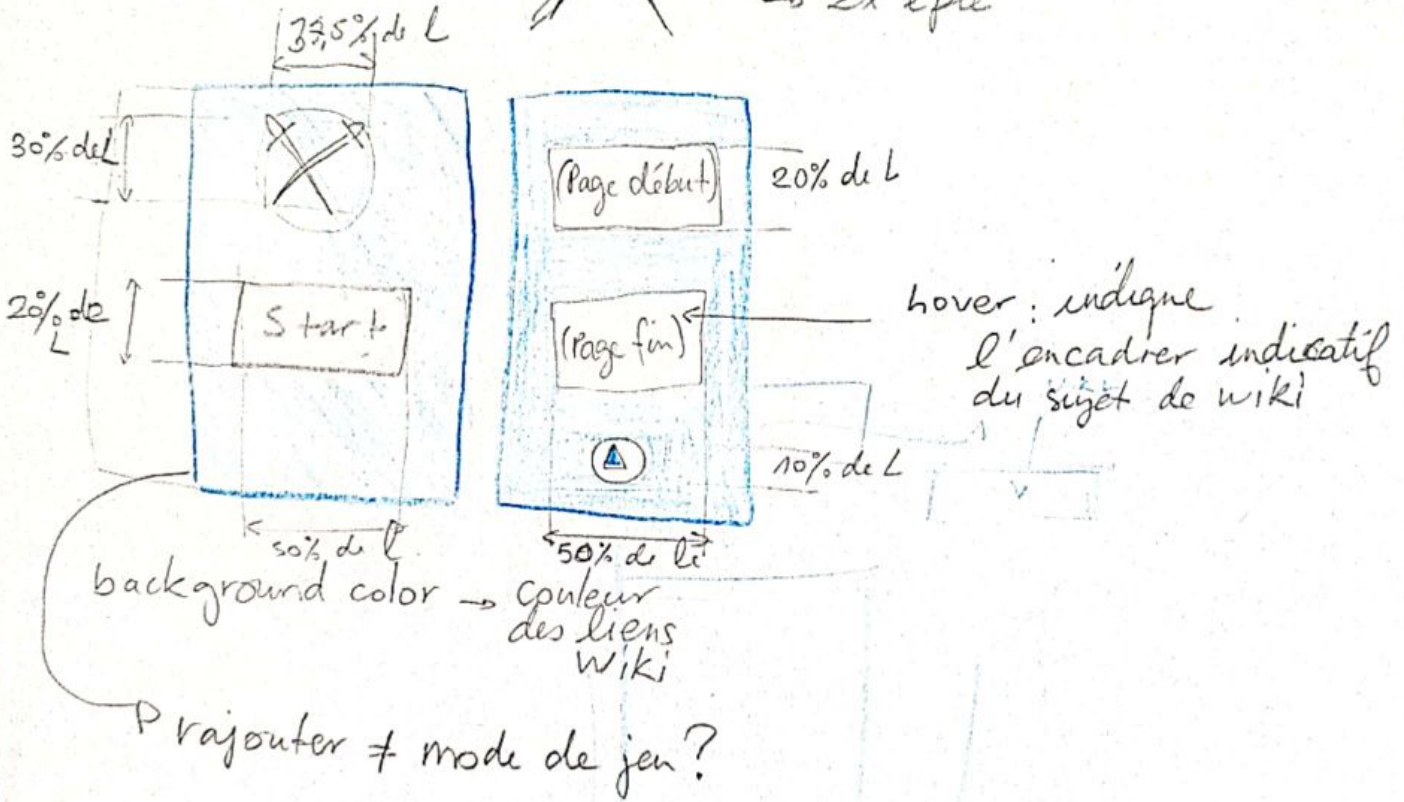 → 2x épée
37,5% de L
30% de L
20% de
L
Start
50% de l
(Page début)
20% de L
(Page fin)
10% de L
50% de l
hover : indique
l'encadrer indicatif
du sujet de wiki
background color → couleur
des liens
Wiki
rajouter ≠ mode de jeu ?